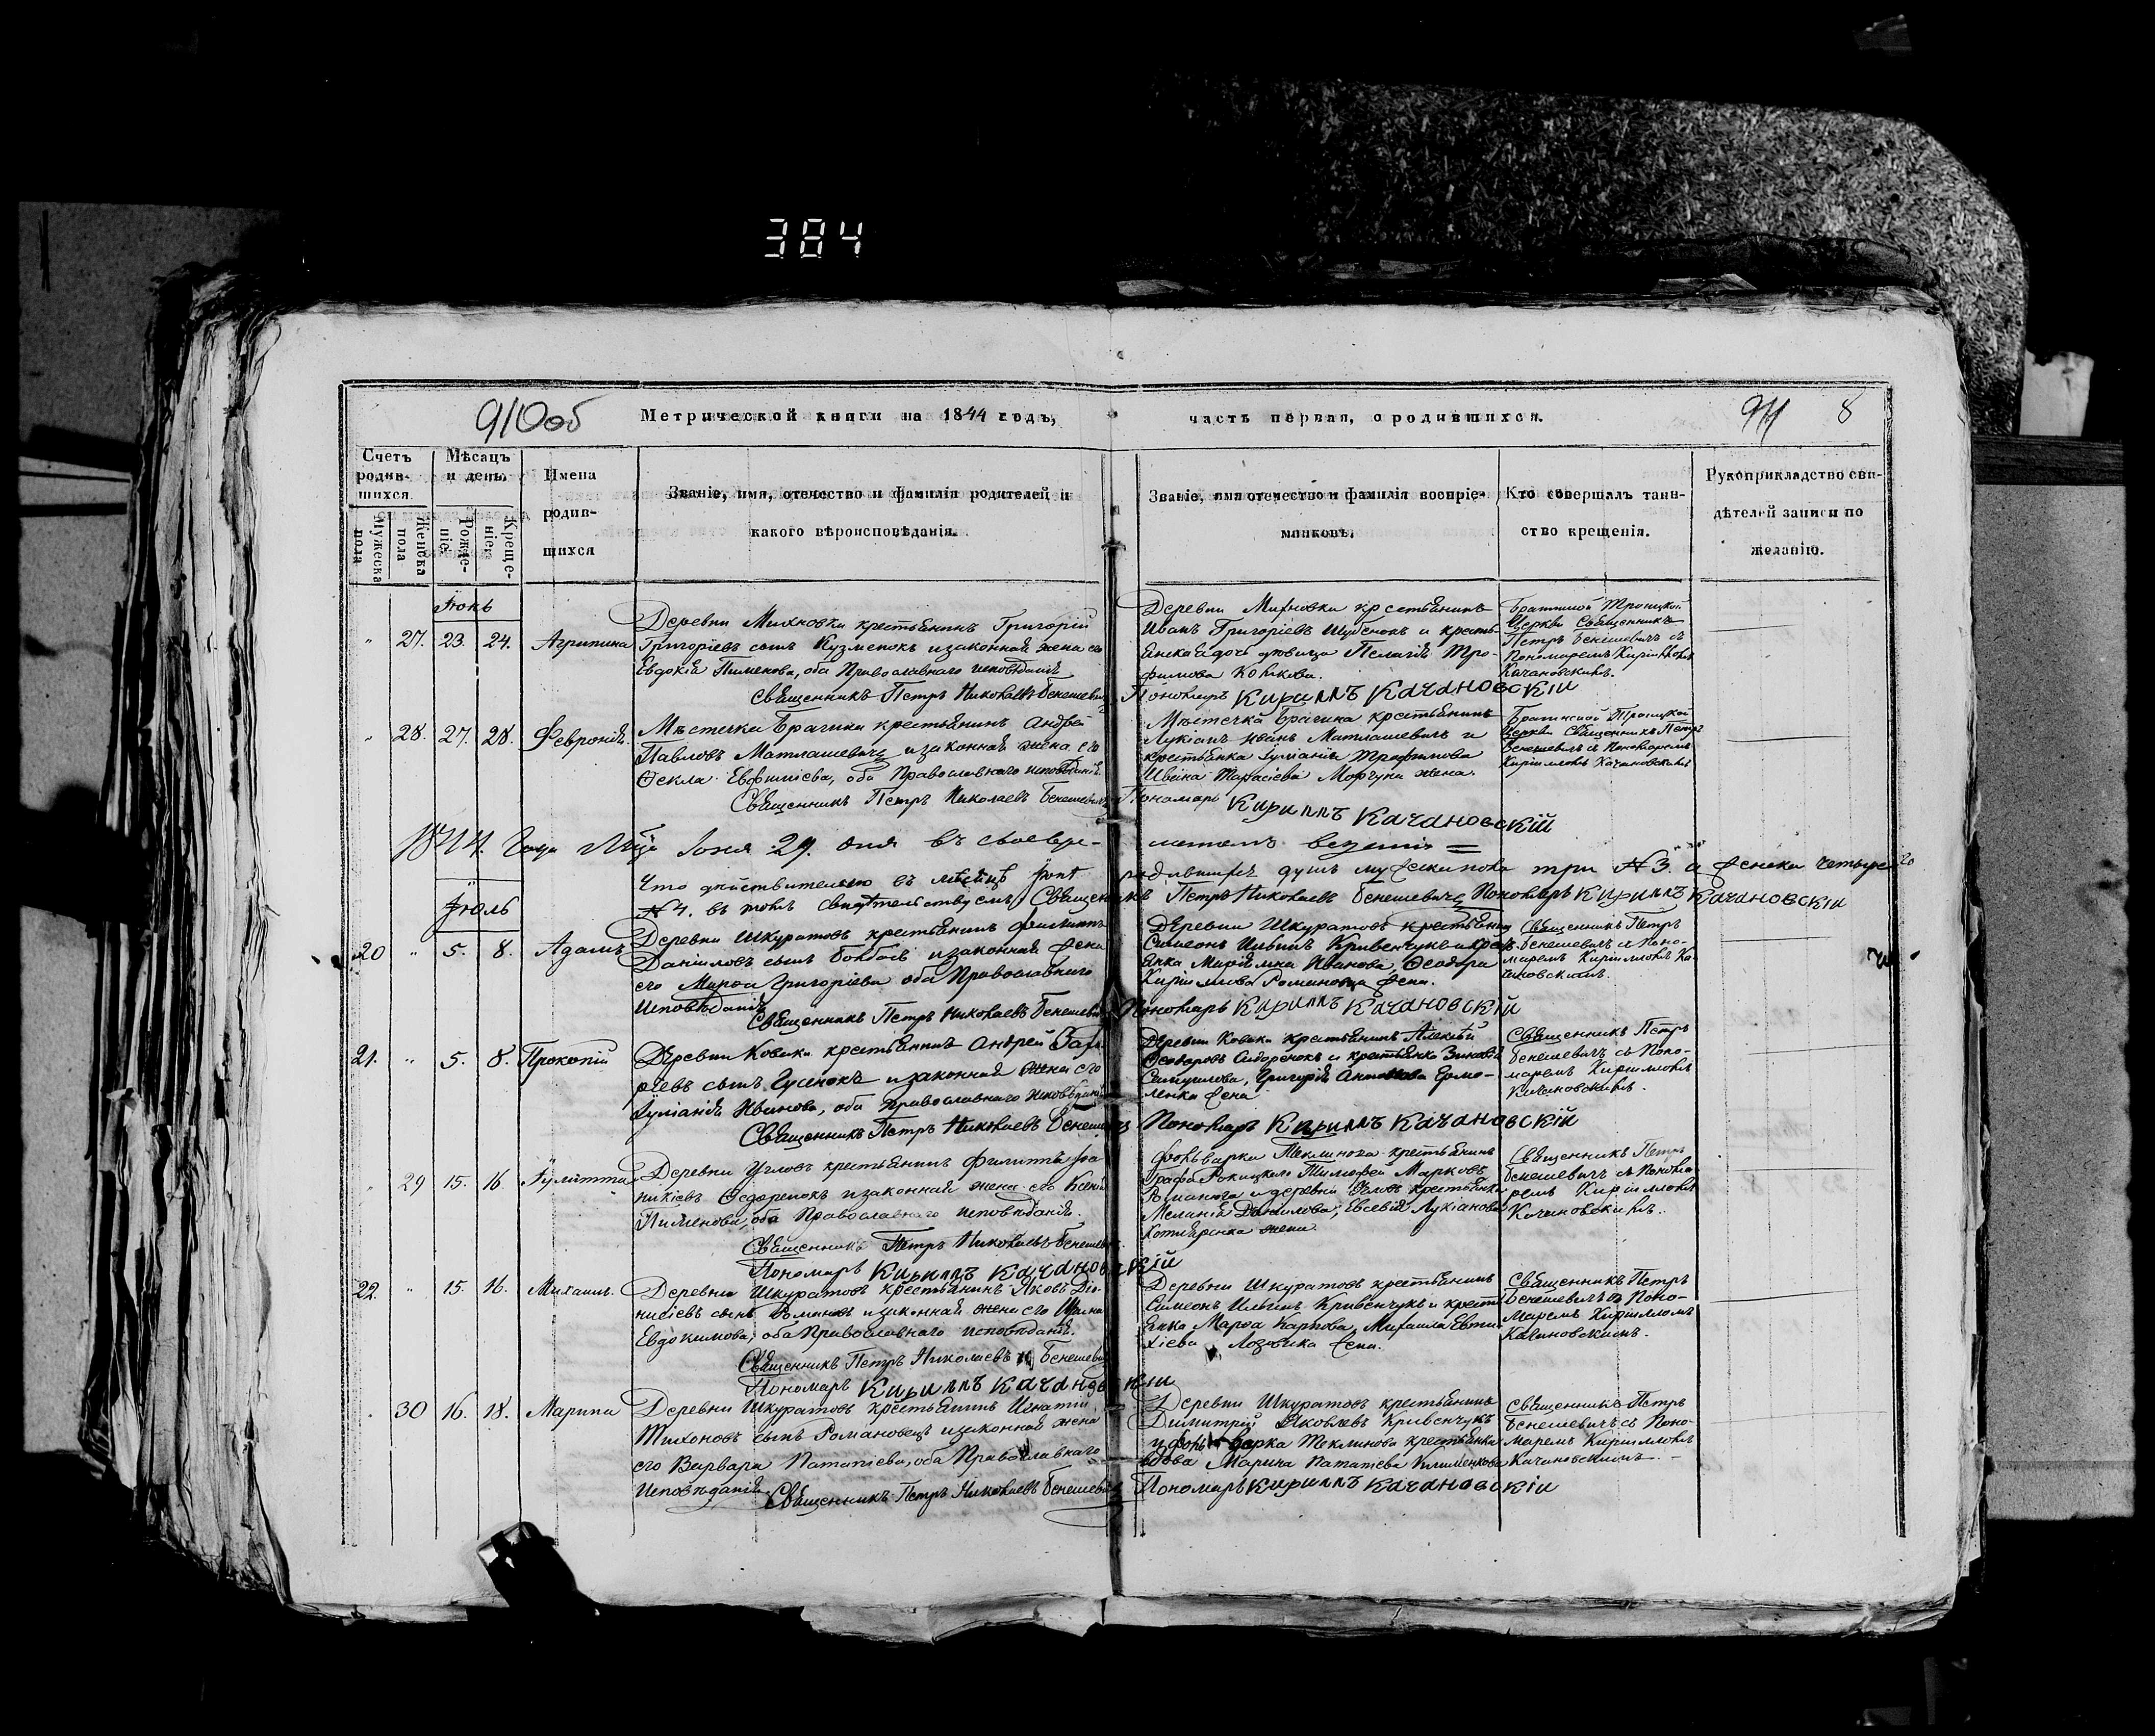 384
910об
Метрической книги на 1844 годъ,
часть первая, о родившихся.
911
8
Счетъ родив-шихся.
Мѣсяцъ и день.
Имена родив-шихся
Званіе, имя, отечество и фамилія родителей и какого вѣроисповѣданія.
Званіе, имя отечество и фамилія воспріе-мниковъ.
Кто совершалъ таин-ство крещенія.
Рукоприкладство сви-дѣтелей записи по желанію.
Мужеска пола
Женска пола
Рожде-ніе.
Креще-ніе.
Іюнь
" 27. 23. 24. Агрипина
Деревни Михновки крестьянинъ Григорій
Григоріевъ сынъ Кузменокъ и законная жена его
Евдокія Пименова, оба Православнаго исповѣданія
Священникъ Петръ Николаевъ Бенешевичъ
Деревни Михновки крестьянинъ
Иванъ Григоріевъ Шубенокъ и кресть-
янска дочь дѣвица Пелагія Тро-
фимова Коткова.
Пономарь Кириллъ Качановскій
Брагинской Троицкой
Церкви Священникъ
Петръ Бенешевичъ съ
Пономаремъ Кирилломъ
Качановскимъ.
" 28. 27. 28. Февронія.
Мѣстечка Брагина крестьянинъ Андрей
Павловъ Матлашевичъ и законная жена его
Ѳекла Евфиміева, оба Православнаго исповѣданія.
Священникъ Петръ Николаевъ Бенешевичъ
Мѣстечка Брагина крестьянинъ
Лукіанъ Матлашевичъ и
крестьянка Іуліанія Трофимова
Ивана Тарасіева Моргуна жена.
Пономарь Кириллъ Качановскій
Брагинской Троицкой
Церкви Священникъ Петръ
Бенешевичъ съ Пономаремъ
Кирилломъ Качановскимъ
1844. Года Іюня 29. дня въ свовре-
Что дѣйствительно въ мѣсяцѣ родившихся душъ мужеска пола три №3. а женска четыре
№4. въ томъ свидѣтельствуемъ Священникъ Петръ Николаевъ Бенешевичъ Пономарь Кириллъ Качановскій
Іюль
20 " 5. 8. Адамъ
Деревни Шкуратовъ крестьянинъ Филиппъ
Даніиловъ сынъ и законная жена
его Марѳа Григоріева оба Православнаго
Исповѣданія
Священникъ Петръ Николаевъ Бенешевичъ
Деревни Шкуратовъ крестьянинъ
Симеонъ Ильинъ Кривенчукъ и крест-
янка Маріамна Иванова, Ѳеодора
Кирилова Романовца жена.
Пономарь Кириллъ Качановскій
Священникъ Петръ
Бенешевичъ съ Поно-
маремъ Кирилломъ Ка-
чановскимъ.
21. " 5. 8. Прокопій
Деревни Ковака крестьянинъ Андрей
ріевъ сынъ Гусенокъ и законная жена его
Іуліанія Иванова, оба Православнаго исповѣданія
Священникъ Петръ Николаевъ Бенешевичъ
Деревни Ковака крестьянинъ Алексѣй
Ѳеодоровъ Сидоренокъ и крестьянка Зиновія
Самуилова, Григорія Антонова Ермо-
ленка жена
Пономарь Кириллъ Качановскій
Священникъ Петръ
Бенешевичъ съ Поно-
маремъ Кирилломъ
Качановскимъ.
29 15. 16 Іулитта
Деревни Угловъ крестьянинъ Филиппъ Іоа-
никіевъ и законная жена его Ксенія
Пименова, оба Православнаго исповѣданія.
Священникъ Петръ Николаевъ Бенешевичъ
Пономарь Кириллъ Качановскій
Фольварка Теклинова крестьянинъ
Графа Рокицкаго Тимофей Марковъ
Романюга и деревни Угловъ крестьянка
Меланія Данилова, Евсевія Лукіанова
жена
Священникъ Петръ
Бенешевичъ съ Понома-
ремъ Кирилломъ
Качановскимъ.
22. " 15. 16. Михаилъ.
Деревни Шкуратовъ крестьянинъ Яковъ Діо-
нисіевъ сынъ и законная жена его
Евдокимова, оба Православнаго исповѣданія.
Священникъ Петръ Николаевъ Бенешевичъ
Пономарь Кириллъ Качановскій
Деревни Шкуратовъ крестьянинъ
Симеонъ Ильинъ Кривенчукъ и крест-
янка Марѳа Карпова, Михаила Евти-
хіева жена.
Священникъ Петръ
Бенешевичъ съ Поно-
маремъ Кирилломъ
Качановскимъ.
30 16. 18. Марина
Деревни Шкуратовъ крестьянинъ Игнатій
Тихоновъ сынъ Романовецъ и законная жена
его Варвара Потапіева, оба Православнаго
Исповѣданія.
Священникъ Петръ Николаевъ Бенешевичъ
Деревни Шкуратовъ крестьянинъ
Димитрій Яковлевъ Кривенчукъ
и фольварка Теклинова крестьянка
вдова Марина Потапіева Клименкова
Пономарь Кириллъ Качановскій
Священникъ Петръ
Бенешевичъ съ Поно-
маремъ Кирилломъ
Качановскимъ.